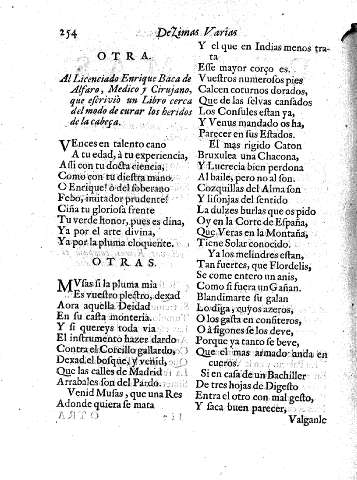 254 Dezimas Varias
OTRA.
Al Licenciado Enrique Baca de
Alfaro, Medico y Cirujano,
que escrivió un Libro cerca
del modo de curar los heridos
de la cabeça.
VEnces en talento cano
A tu edad, à tu experiencia,
Assi con tu docta ciencia,
Como con tu diestra mano.
O Enrique! ò del soberano
Febo, imitador prudente!
Ciña tu gloriosa frente
Tu verde honor, pues es dina,
Ya por el arte divina,
Ya por la pluma eloquente.
OTRAS.
MVsas si la pluma mia
Es vuestro plectro, dexad
Aora aquella Deidad
En su casta monteria.
Y si quereys toda via
El instrumento hazer dardo
Contra el Corcillo gallardo,
Dexad el bosque, y venid,
Que las calles de Madrid
Arrabales son del Pardo.
Venid Musas, que una Res
Adonde quiera se mata
Y el que en Indias menos tra-
ta
Esse mayor corço es.
Vuestros numerosos pies
Calcen coturnos dorados,
Que de las selvas cansados
Los Consules estan ya,
Y Venus mandado os ha,
Parecer en sus Estados.
El mas rigido Caton
Bruxulea una Chacona,
Y Lucrecia bien perdona
Al baile, pero no al son.
Cozquillas del Alma son
Y lisonjas del sentido
La dulzes burlas que os pido
Oy en la Corte de España,
Que Veras en la Montaña,
Tiene Solar conocido.
Ya los melindres estan,
Tan fuertes, que Flordelis,
Se come entero un anis,
Como si fuera un Gañan.
Blandimarte su galan
Lo diga, cuyos azeros,
O los gasta en confiteros,
O à figones se los deve,
Porque ya tanto se beve,
Que el mas armado anda en
cueros.
Si en casa de un Bachiller
De tres hojas de Digesto
Entra el otro con mal gesto,
Y saca buen parecer,
Valganle